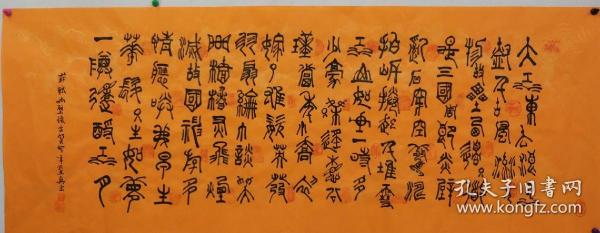 大江東去浪淘
盡千古風流人
物故壘西邊人道
是三國周郎赤壁
亂石穿空驚濤
拍岸捲起千堆雪
江山如畫一時多
少豪傑遙想公
瑾當年小喬初
嫁了雄姿英發
羽扇綸巾談笑
間檣櫓灰飛煙
滅故國神游多
情應笑我早生
華髮人生如夢
一尊還酹江月
孔夫子旧书网
www.kongfz.com